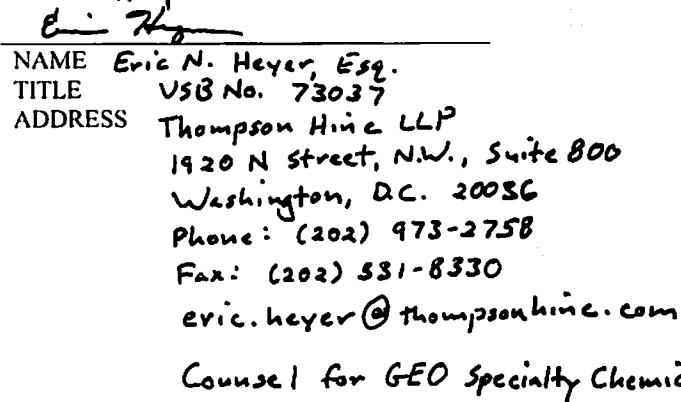 NAME Eric N. Heyer, Esq.
TITLE VSB No. 73037
ADDRESS Thompson Hine LLP
1920 N Street, N.W., Suite 800
Washington, D.C. 20036
Phone: (202) 973-2758
Fax: (202) 331-8330
eric.heyer@thompsonhine.com
Counsel for GEO Specialty Chemic